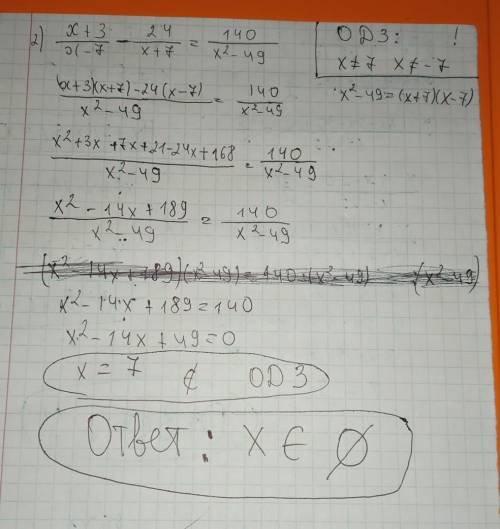 2) (x+3)/(x-7) - 24/(x+7) = 140/(x²-49)
ОДЗ: !
x≠7 x≠-7
x²-49=(x+7)(x-7)
((x+3)(x+7)-24(x-7))/(x²-49) = 140/(x²-49)
(x²+3x+7x+21-24x+168)/(x²-49) = 140/(x²-49)
(x²-14x+189)/(x²-49) = 140/(x²-49)
(x²-14x+189)(x²-49)=140·(x²-49) (x²-49)
x²-14x+189=140
x²-14x+49=0
x=7 ∉ ОДЗ
Ответ: x∈∅